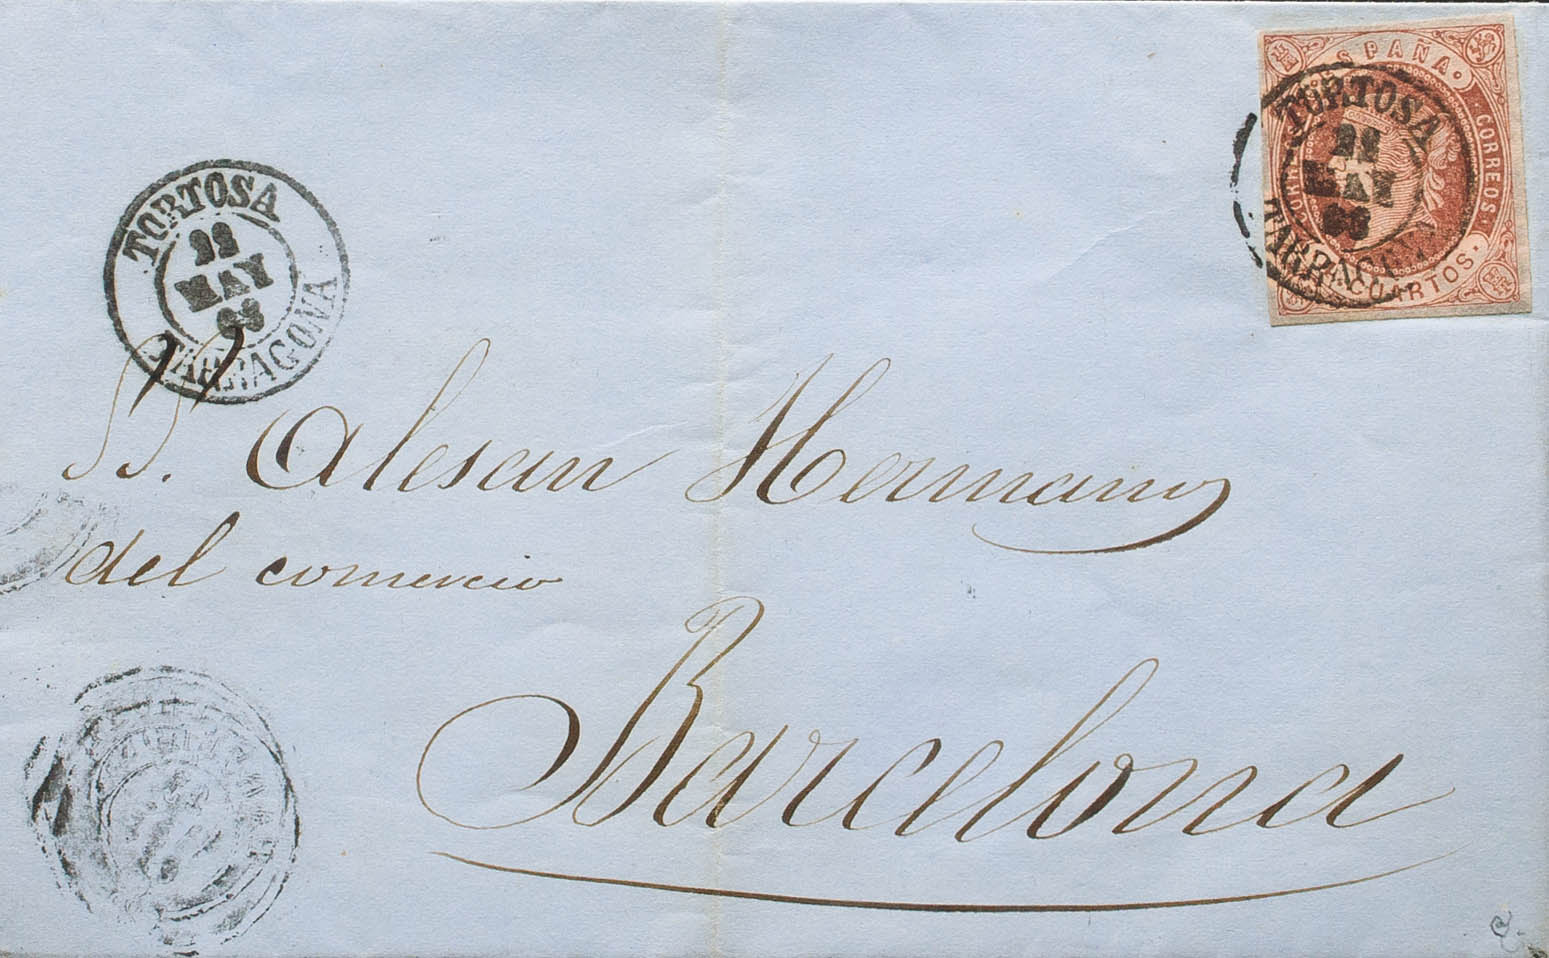 TORTOSA
22
MAY
63
TARRAGONA
ESPAÑA
CORREOS
CUARTOS
TORTOSA
22
MAY
TARRAGONA
SS. Alesan Hermanos
del comercio
Barcelona